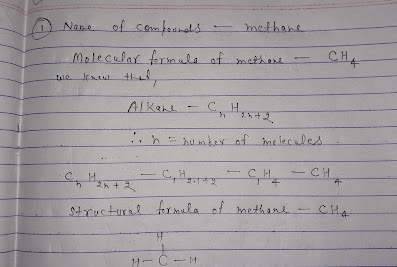 ① Name of compounds — methane
Molecular formula of methane — CH4
we know that,
Alkane — CnH2n+2
∴ n = number of molecules
CnH2n+2 — C1H2.1+2 — C1H4 — CH4
structural formula of methane — CH4
H
H — C — H